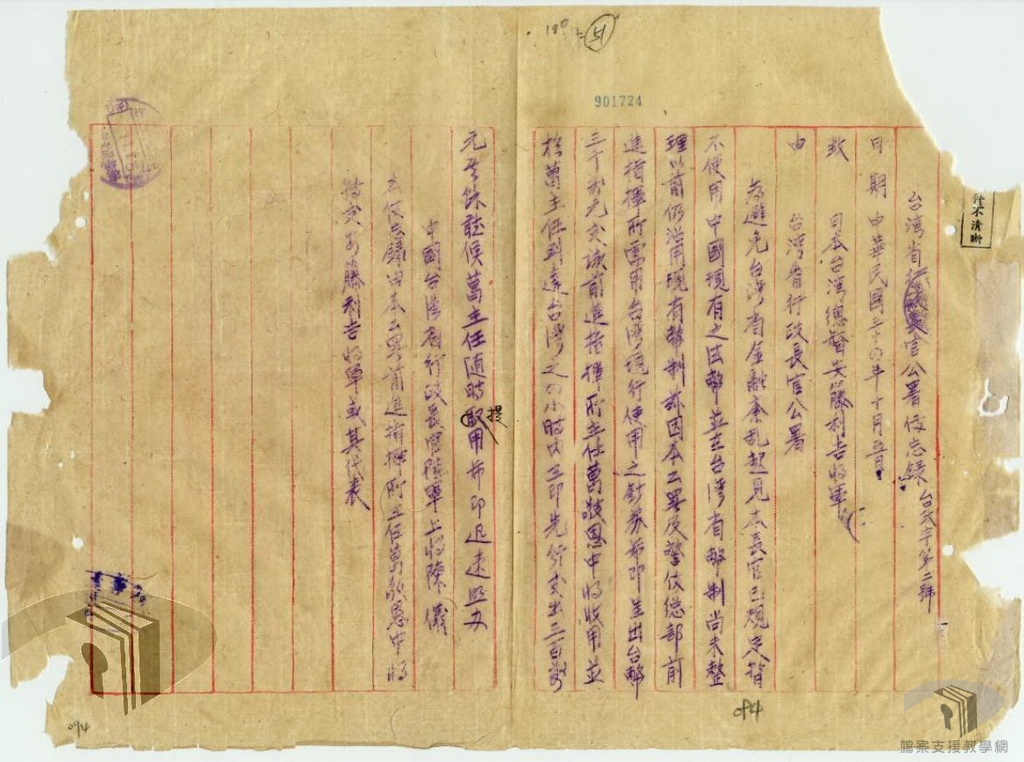 180
901724
台湾省行政長官公署俻忘録 台字第二號
日期 中華民國三十四年十月五日
致 日本台湾總督安藤利吉将軍
由 台湾省行政長官公署
為避免台湾省金融紊乱起見本長官已規定暂
不使用中國現有之法幣並在台湾省幣制尚未整
理以前仍沿用現有幣制兹因本公署及警俻總部前
進指揮所需用台湾現行使用之鈔券希即呈出台幣
三千萬元交該前進指揮所主任葛敬恩中将收用並
於葛主任到達台湾之四小時内立即先行交出三百萬
元其餘聽候葛主任随時提用希即迅速照办
中國台湾省行政長官陸軍上将陳儀
本俻忘錄由本公署前進指揮所主任葛敬恩中将
持交安藤利吉将軍或其代表
字不清晰
094
094
檔案支援教學網